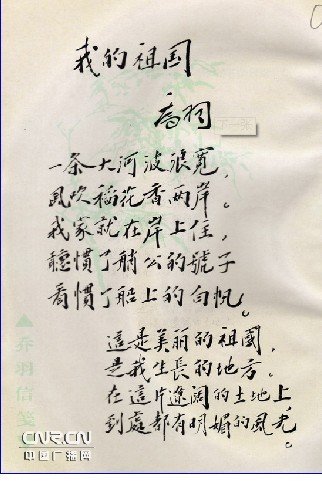 我的祖国
乔羽
一条大河波浪宽，
風吹稻花香两岸。
我家就在岸上住，
聽慣了艄公的號子
看慣了船上的白帆。
這是美丽的祖國，
是我生長的地方。
在這片遼闊的土地上，
到處都有明媚的風光。
乔羽信笺
CNR.CN
中国广播网